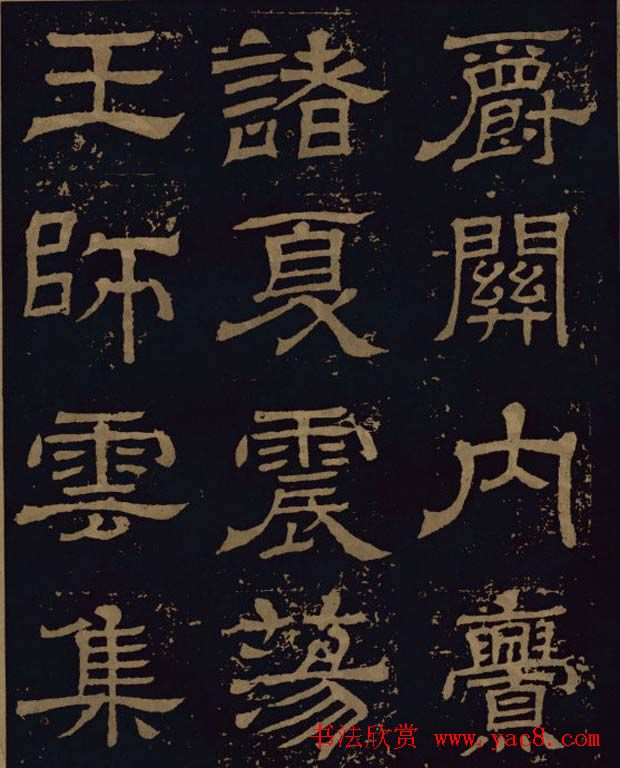 爵關内釁
諸夏震蕩
王師雲集
书法欣赏 www.yac8.com